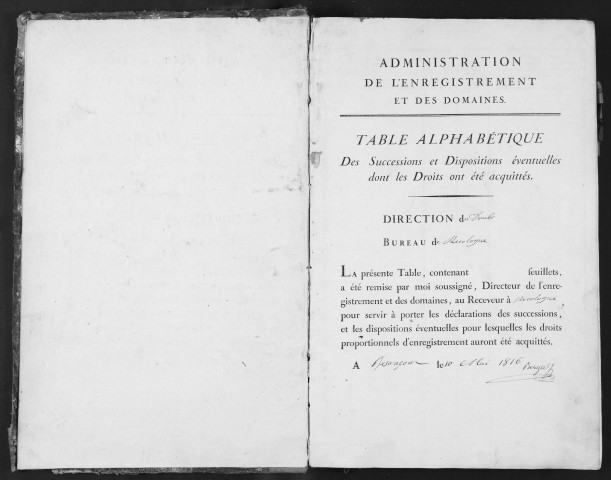 ADMINISTRATION
DE L'ENREGISTREMENT
ET DES DOMAINES.
TABLE ALPHABÉTIQUE
Des Successions et Dispositions éventuelles
dont les Droits ont été acquittés.
DIRECTION du Doubs
BUREAU de Recologne
LA présente Table, contenant feuillets,
a été remise par moi soussigné, Directeur de l'enre-
gistrement et des domaines, au Receveur à Recologne
pour servir à porter les déclarations des successions,
et les dispositions éventuelles pour lesquelles les droits
proportionnels d'enregistrement auront été acquittés.
A Besançon le 10 Mai 1816